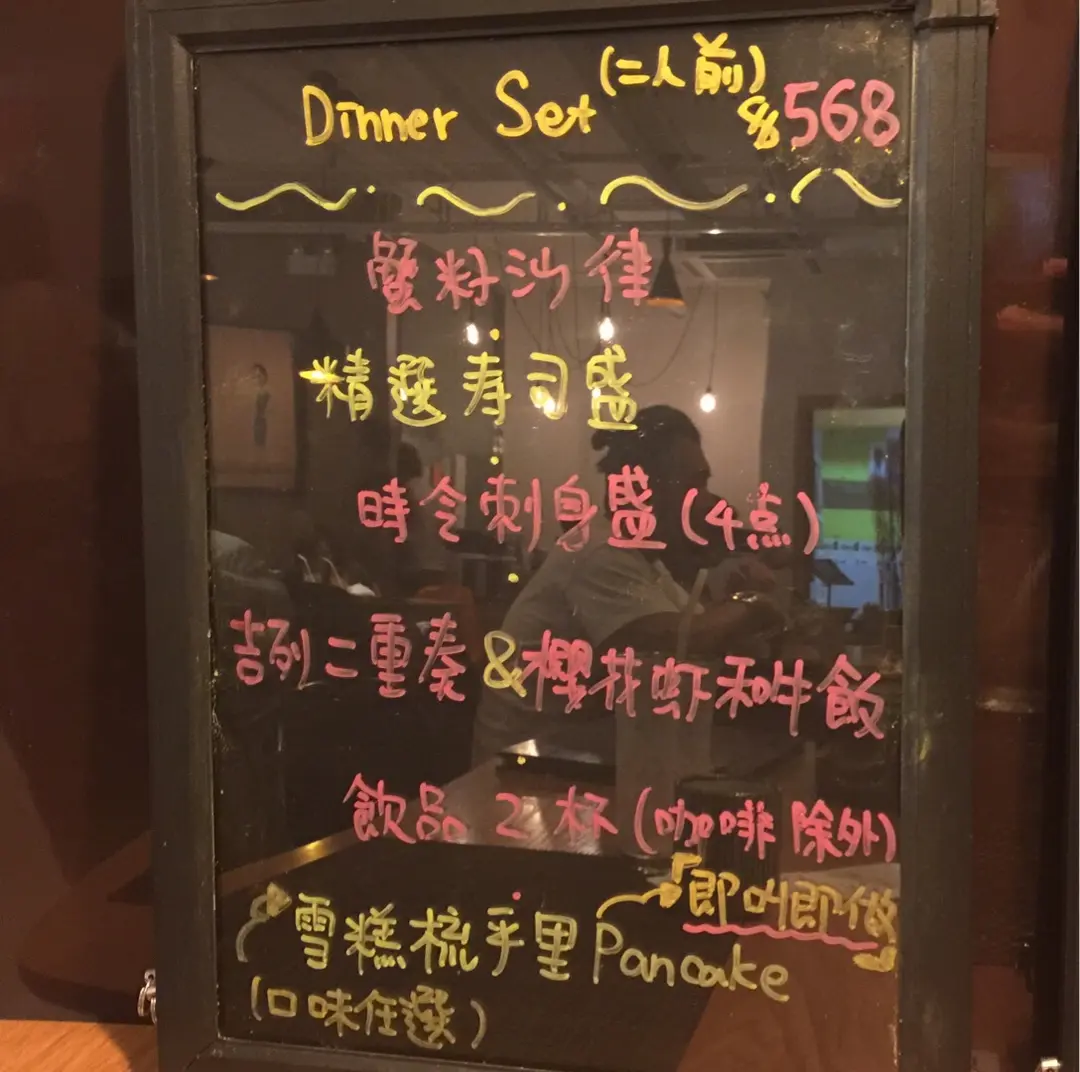 Dinner Set (二人前) $568
蟹籽沙律
精選寿司盛
時令刺身盛(4点)
吉列二重奏&櫻花虾和牛飯
飲品2杯(咖啡除外)
「即叫即做」
雪糕梳乎里Pancake
(口味任選)